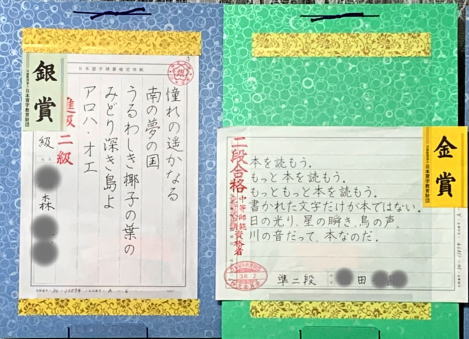 銀賞
日本習字教育財団
憧れの遥かなる
南の夢の国
うるわしき椰子の葉の
みどり深き島よ
アロハ・オエ
進級 二級
級
森
金賞
日本習字教育財団
本を読もう。
もっと本を読もう。
もっともっと本を読もう。
書かれた文字だけが本ではない。
日の光り、星の瞬き、鳥の声、
川の音だって、本なのだ。
二段合格
中等師範
資格者
準二段
田